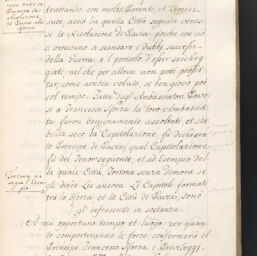 trottando con molti Parenti, et Amici
suoi, acciò da quella Città seguita venis
se la Risoluzione di Pavia, poichè con ciò
si venivano a scansare i dubbj successi
della Guerra, e l pericolo d'esser saccheg
giati, nel che per allora non potè profit
tar, come aveva voluto, se ben giovò poi
col tempo. Fatta dagl' Ambasciatori Pave
si a Francesco Sforza la loro Ambascia
ta furon benignamente ascoltati, et sta
bilita seco la Capitolazione, fu dichiara
to Principe di Pavia, qual Capitolazione
fu del tenor seguente, et ad esempio del
la quale Città, Tortona senza dimora se
gli diede Lei ancora. Li Capitoli formati
tra lo Sforza, et la Città di Pavia, sono
gl' infrascritti in sostanza
A più opportuno tempo, et luogo, per quan
to comporteranno le forze, confermerà il
Principe Francesco Sforza i Privilegj